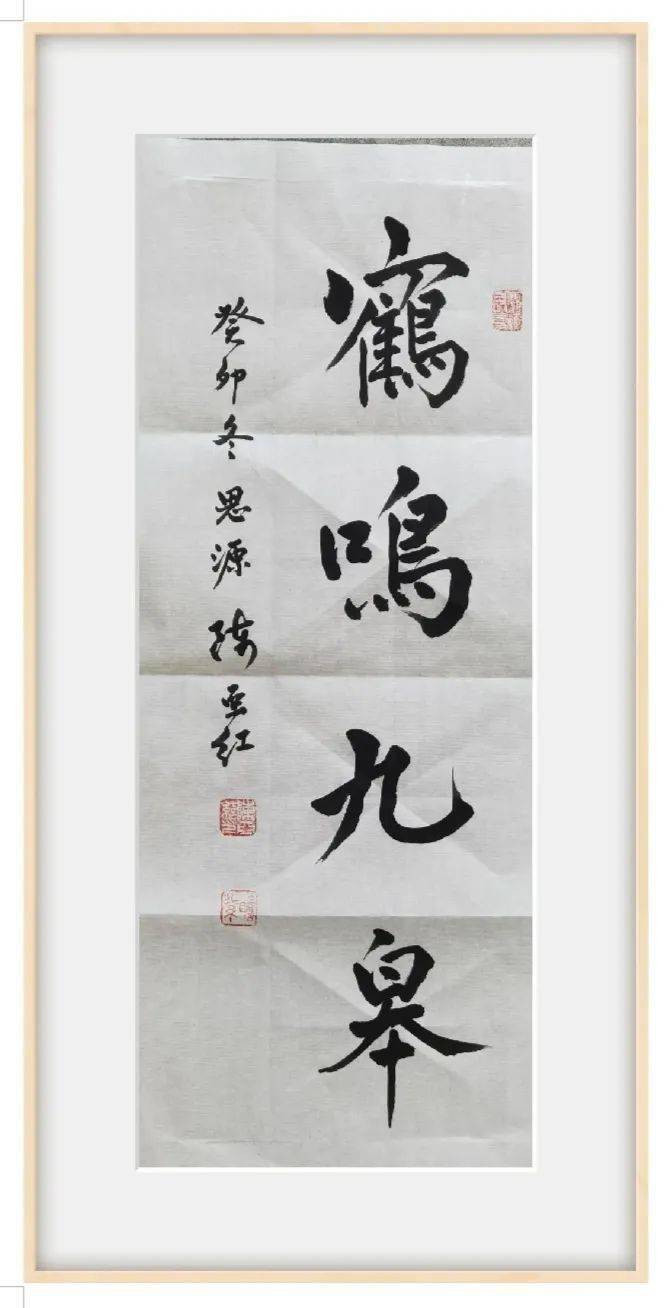 鶴鳴九皋
癸卯冬思源陈亚红